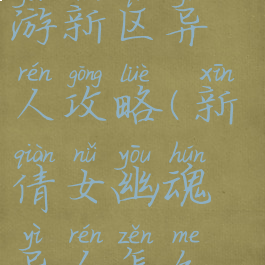 游新区异
rén gōng lüè xīn
人攻略(新
qiàn nǚ yōu hún
倩女幽魂
yì rén zěn me
异人怎么